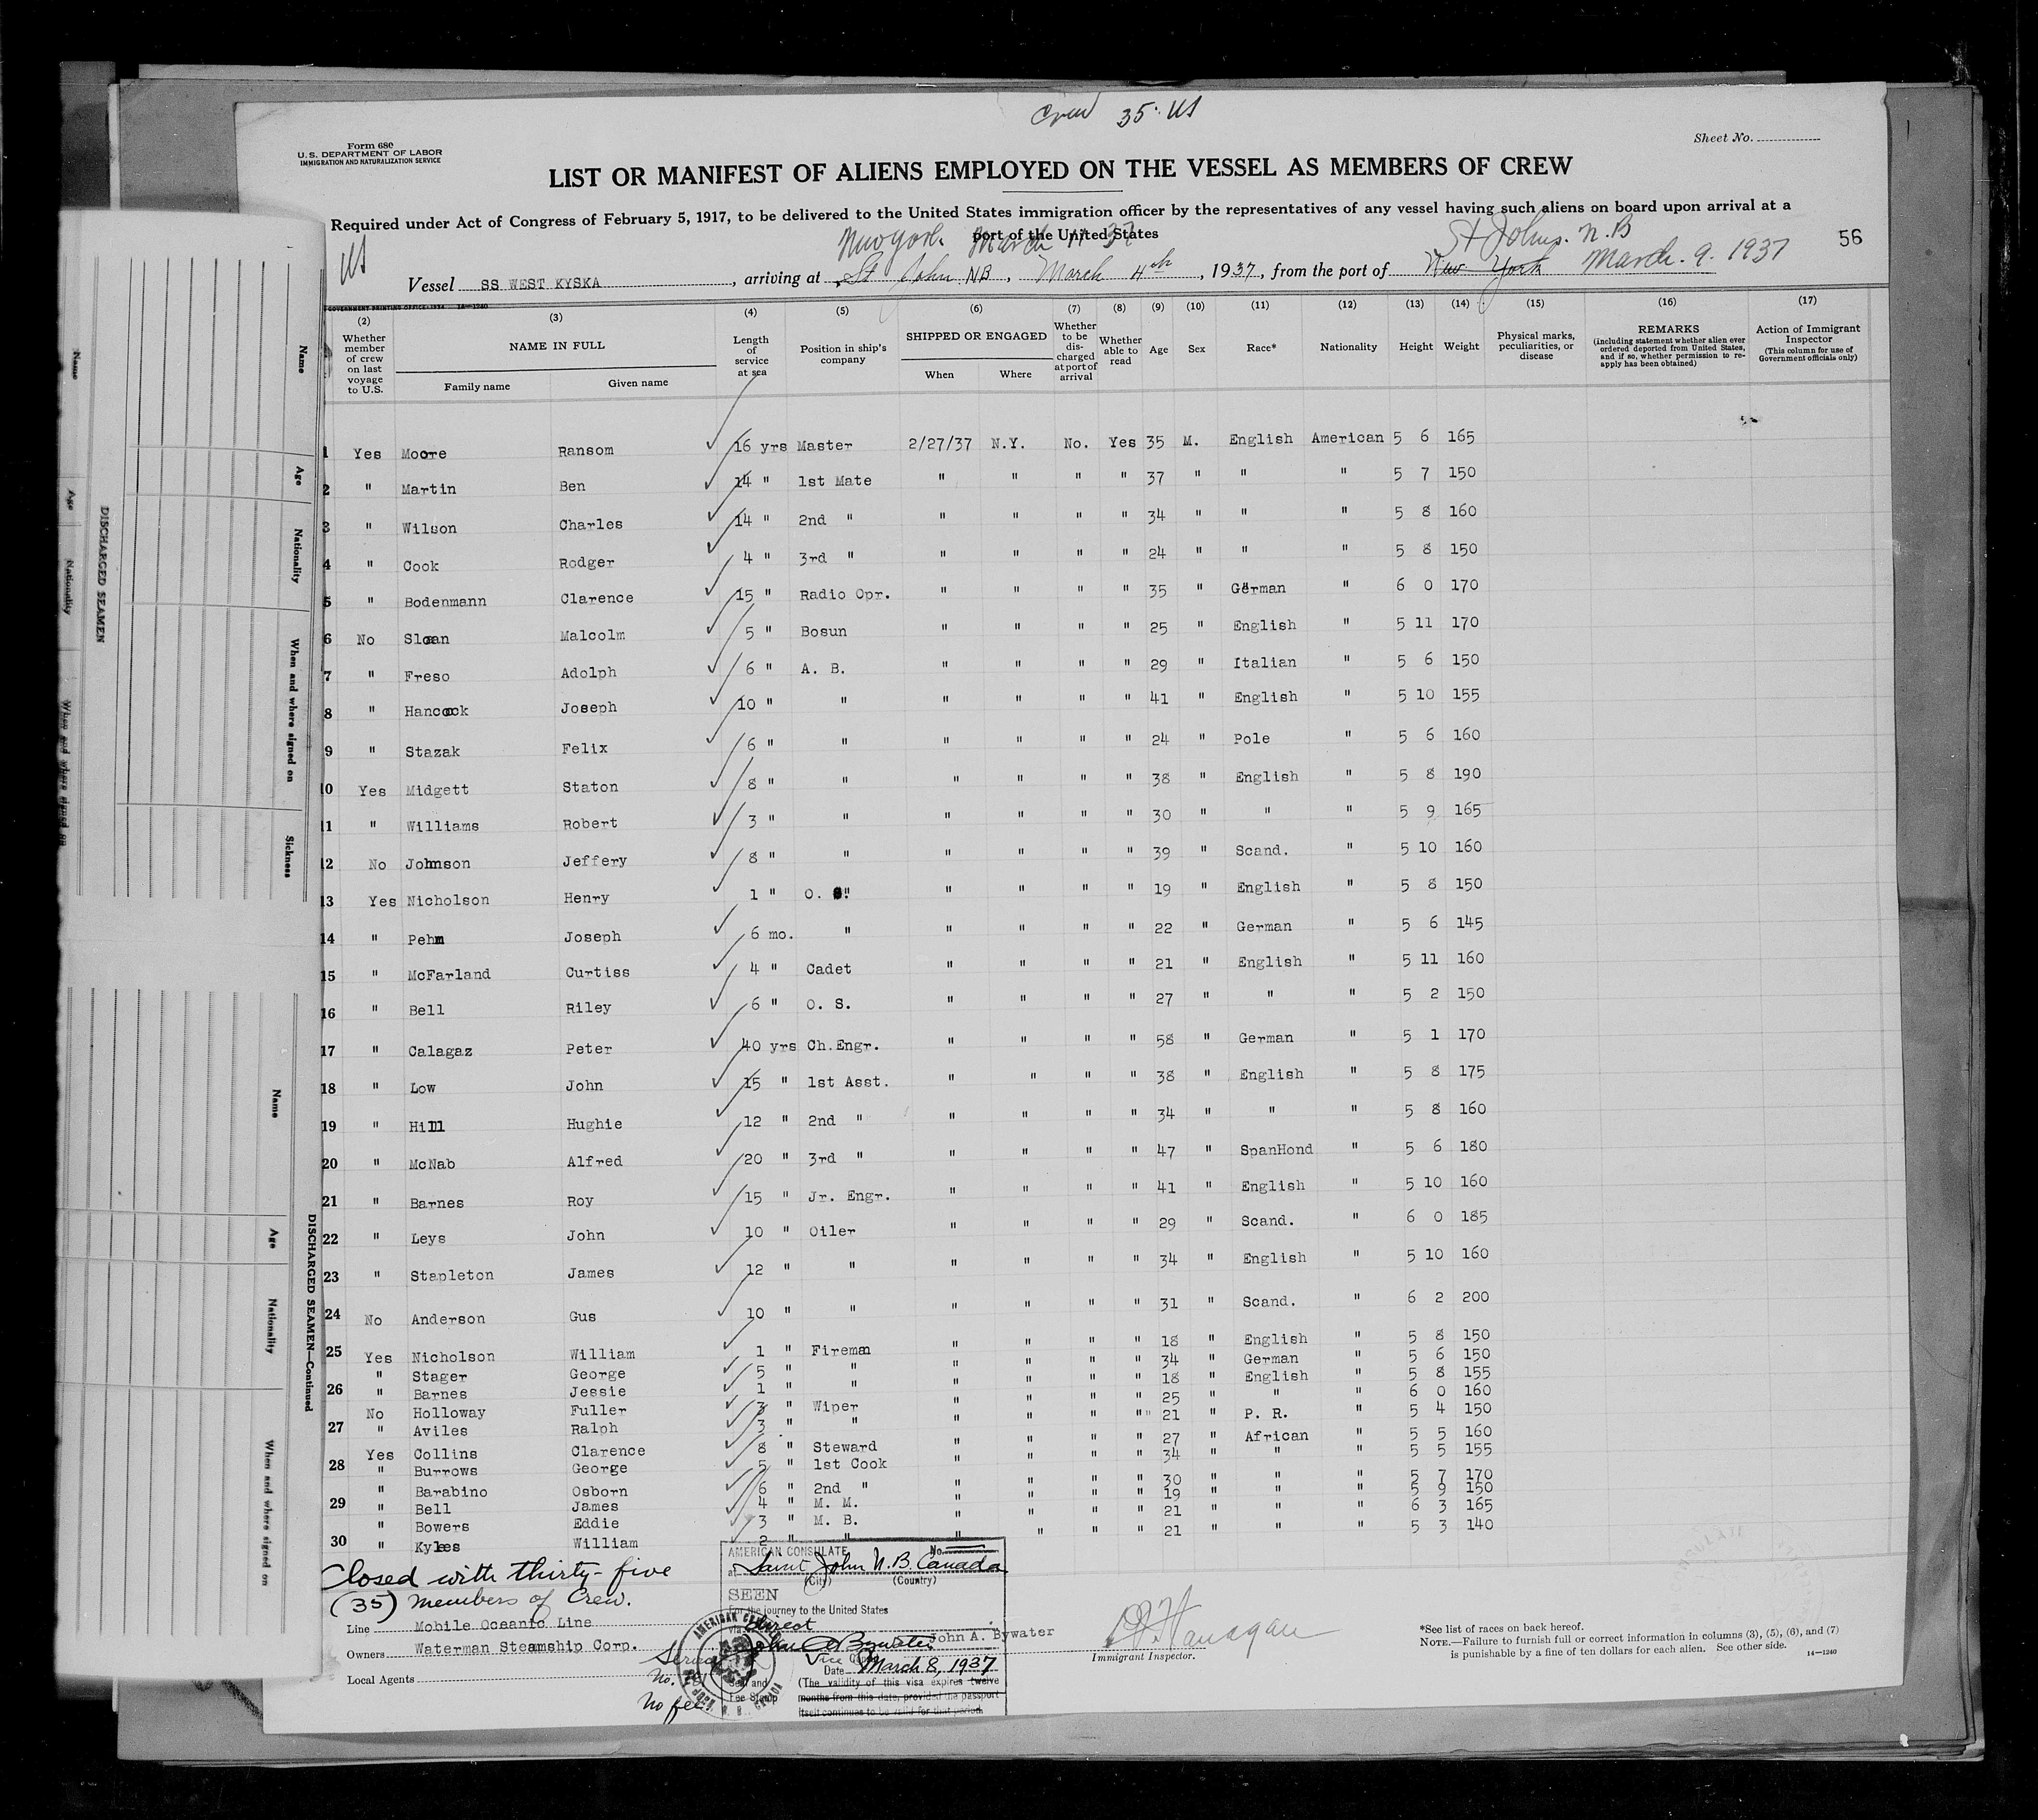 Crew 35. US
Form 680
U.S. DEPARTMENT OF LABOR
IMMIGRATION AND NATURALIZATION SERVICE
Sheet No.
LIST OR MANIFEST OF ALIENS EMPLOYED ON THE VESSEL AS MEMBERS OF CREW
Required under Act of Congress of February 5, 1917, to be delivered to the United States immigration officer by the representatives of any vessel having such aliens on board upon arrival at a
port of the United States
New York. March 11 37
St Johns. N.B
56
US
Vessel SS WEST KYSKA, arriving at St John NB, March 4th, 1937, from the port of New York March. 9. 1937
(2) (3) (4) (5) (6) (7) (8) (9) (10) (11) (12) (13) (14) (15) (16) (17)
Whether member of crew on last voyage to U.S.
NAME IN FULL
Family name Given name
Length of service at sea
Position in ship's company
SHIPPED OR ENGAGED
When Where
Whether to be discharged at port of arrival
Whether able to read
Age
Sex
Race*
Nationality
Height
Weight
Physical marks, peculiarities, or disease
REMARKS
(including statement whether alien ever ordered deported from United States, and if so, whether permission to reapply has been obtained)
Action of Immigrant Inspector
(This column for use of Government officials only)
1 Yes Moore Ransom 16 yrs Master 2/27/37 N.Y. No. Yes 35 M. English American 5 6 165
2 " Martin Ben 14 " 1st Mate " " " " 37 " " " 5 7 150
3 " Wilson Charles 14 " 2nd " " " " " 34 " " " 5 8 160
4 " Cook Rodger 4 " 3rd " " " " " 24 " " " 5 8 150
5 " Bodenmann Clarence 15 " Radio Opr. " " " " 35 " German " 6 0 170
6 No Sloan Malcolm 5 " Bosun " " " " 25 " English " 5 11 170
7 " Freso Adolph 6 " A. B. " " " " 29 " Italian " 5 6 150
8 " Hancock Joseph 10 " " " " " " 41 " English " 5 10 155
9 " Stazak Felix 6 " " " " " " 24 " Pole " 5 6 160
10 Yes Midgett Staton 8 " " " " " " 38 " English " 5 8 190
11 " Williams Robert 3 " " " " " " 30 " " " 5 9 165
12 No Johnson Jeffery 8 " " " " " " 39 " Scand. " 5 10 160
13 Yes Nicholson Henry 1 " O. S. " " " " 19 " English " 5 8 150
14 " Pehm Joseph 6 mo. " " " " " 22 " German " 5 6 145
15 " McFarland Curtiss 4 " Cadet " " " " 21 " English " 5 11 160
16 " Bell Riley 6 " O. S. " " " " 27 " " " 5 2 150
17 " Calagaz Peter 40 yrs Ch.Engr. " " " " 58 " German " 5 1 170
18 " Low John 15 " 1st Asst. " " " " 38 " English " 5 8 175
19 " Hill Hughie 12 " 2nd " " " " " 34 " " " 5 8 160
20 " McNab Alfred 20 " 3rd " " " " " 47 " SpanHond " 5 6 180
21 " Barnes Roy 15 " Jr. Engr. " " " " 41 " English " 5 10 160
22 " Leys John 10 " Oiler " " " " 29 " Scand. " 6 0 185
23 " Stapleton James 12 " " " " " " 34 " English " 5 10 160
24 No Anderson Gus 10 " " " " " " 31 " Scand. " 6 2 200
25 Yes Nicholson William 1 " Fireman " " " " 18 " English " 5 8 150
" Stager George 5 " " " " " " 34 " German " 5 6 150
26 " Barnes Jessie 1 " " " " " " 18 " English " 5 8 155
No Holloway Fuller 3 " Wiper " " " " 25 " " " 6 0 160
27 " Aviles Ralph 3 " " " " " " 21 " P. R. " 5 4 150
Yes Collins Clarence 8 " Steward " " " " 27 " African " 5 5 160
28 " Burrows George 5 " 1st Cook " " " " 34 " " " 5 5 155
" Barabino Osborn 6 " 2nd " " " " " 30 " " " 5 7 170
29 " Bell James 4 " M. M. " " " " 19 " " " 5 9 150
" Bowers Eddie 3 " M. B. " " " " 21 " " " 6 3 165
30 " Kyles William 2 " " " " " " 21 " " " 5 3 140
Closed with thirty-five
(35) members of Crew.
Line Mobile Oceanic Line
Owners Waterman Steamship Corp.
Local Agents
AMERICAN CONSULATE No.
at Saint John N.B. Canada
(City) (Country)
SEEN
For the journey to the United States
via direct
John A. Bywater John A. Bywater
Vice Consul
Date March 8, 1937
(The validity of this visa expires twelve
months from this date, provided the passport
itself continues to be valid for that period.
Seal and
Fee Stamp
Service
No fee
Immigrant Inspector.
*See list of races on back hereof.
NOTE.—Failure to furnish full or correct information in columns (3), (5), (6), and (7)
is punishable by a fine of ten dollars for each alien. See other side.
14—1240
Name
Age
Nationality
When and where signed on
Sickness
DISCHARGED SEAMEN
Name
Age
Nationality
When and where signed on
DISCHARGED SEAMEN—Continued